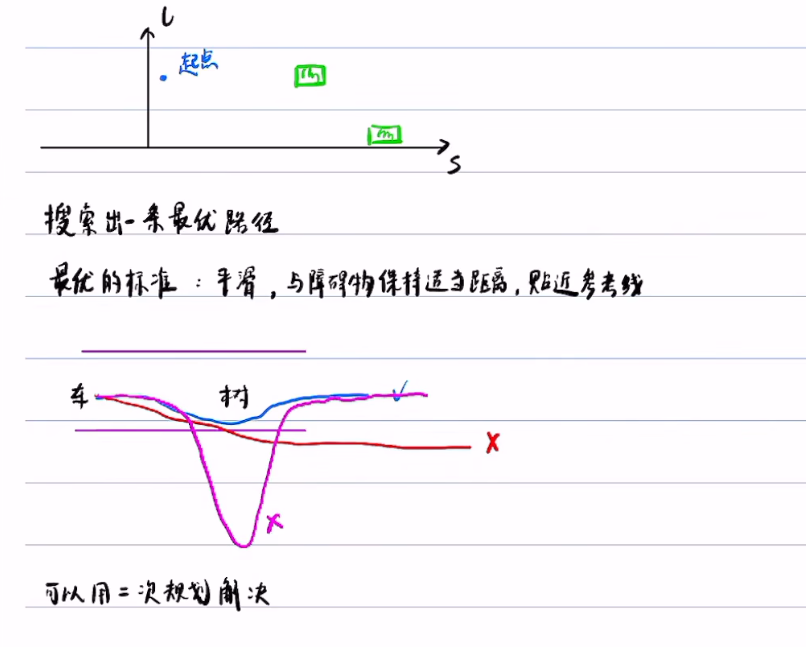 l
起点
s
搜索出一条最优路径
最优的标准：平滑，与障碍物保持适当距离，贴近参考线
车 树
可以用二次规划解决